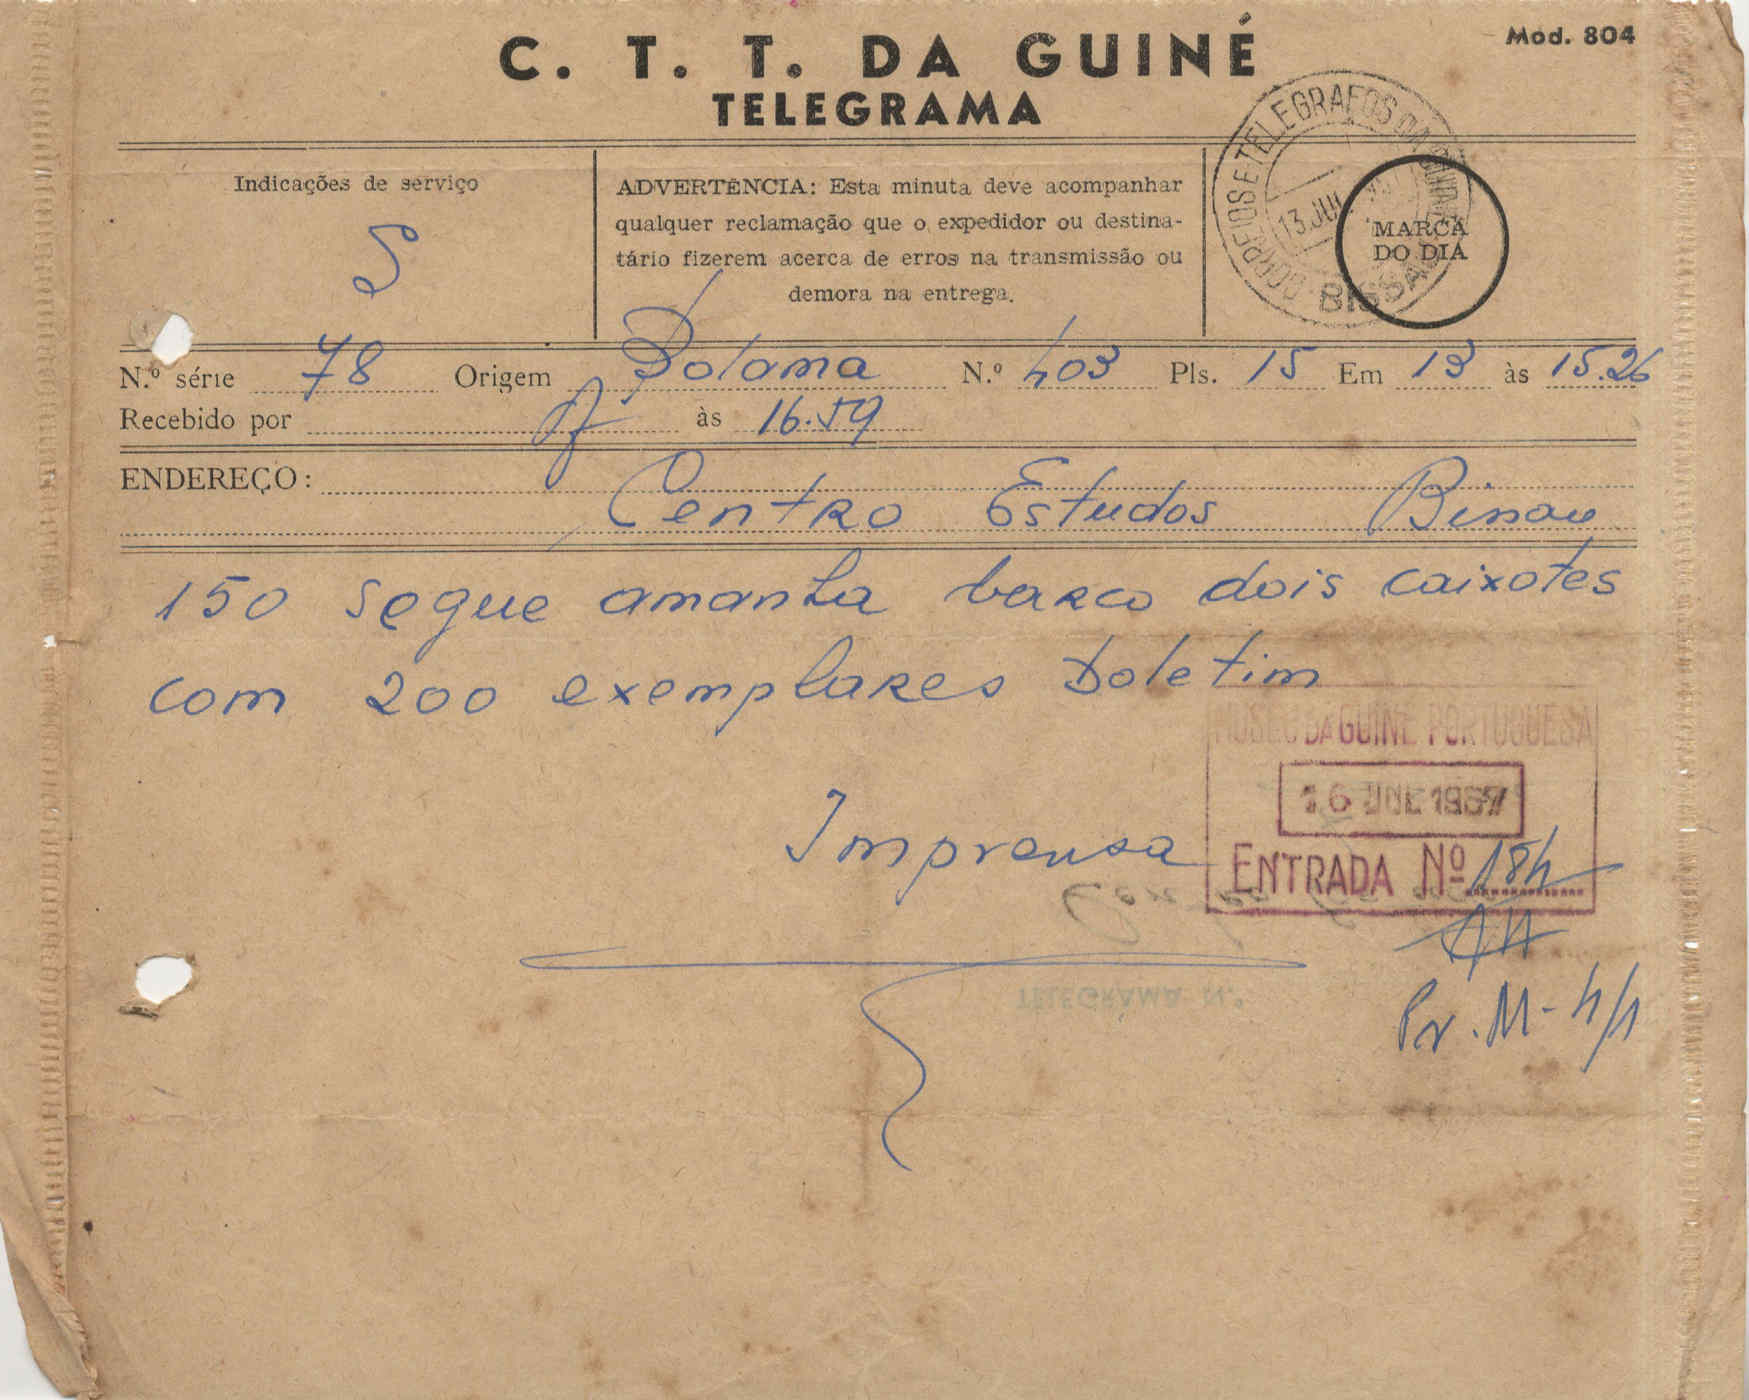 Mod. 804
C. T. T. DA GUINÉ
TELEGRAMA
Indicações de serviço
S
ADVERTÊNCIA: Esta minuta deve acompanhar
qualquer reclamação que o expedidor ou destina-
tário fizerem acerca de erros na transmissão ou
demora na entrega.
CORREIOS E TELEGRAFOS DA GUINÉ
13 JUL
BISSAU
MARCA
DO DIA
N.º série 78 Origem Bolama N.º 403 Pls. 15 Em 13 às 15.26
Recebido por às 16.59
ENDEREÇO:
Centro Estudos Bissau
150 segue amanha barco dois caixotes
com 200 exemplares Boletim
Imprensa
MUSEU DA GUINÉ PORTUGUESA
16 JUL 1967
ENTRADA Nº 184
Pr. M-4/1
TELEGRAMA N.º